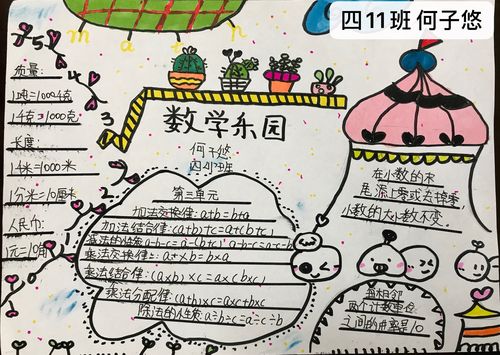 四11班 何子悠
math
5
4
3
2
数学乐园
何子悠
质量:
1吨=1000千克
1千克=1000克
长度:
1千米=1000米
1分米=10厘米
人民币:
元=10角
第三单元
加法交换律:a+b=b+a
加法结合律:(a+b)+c=a+(b+c)
乘法交换律:a×b=b×a
乘法结合律:(a×b)×c=a×(b×c)
乘法分配律:(a+b)×c=a×c+b×c
除法的性质a÷b÷c=a÷c÷b
在小数的末
尾添上零或去掉零
小数的大小数不变.
每相邻
两个计数单位
之间的进率是10